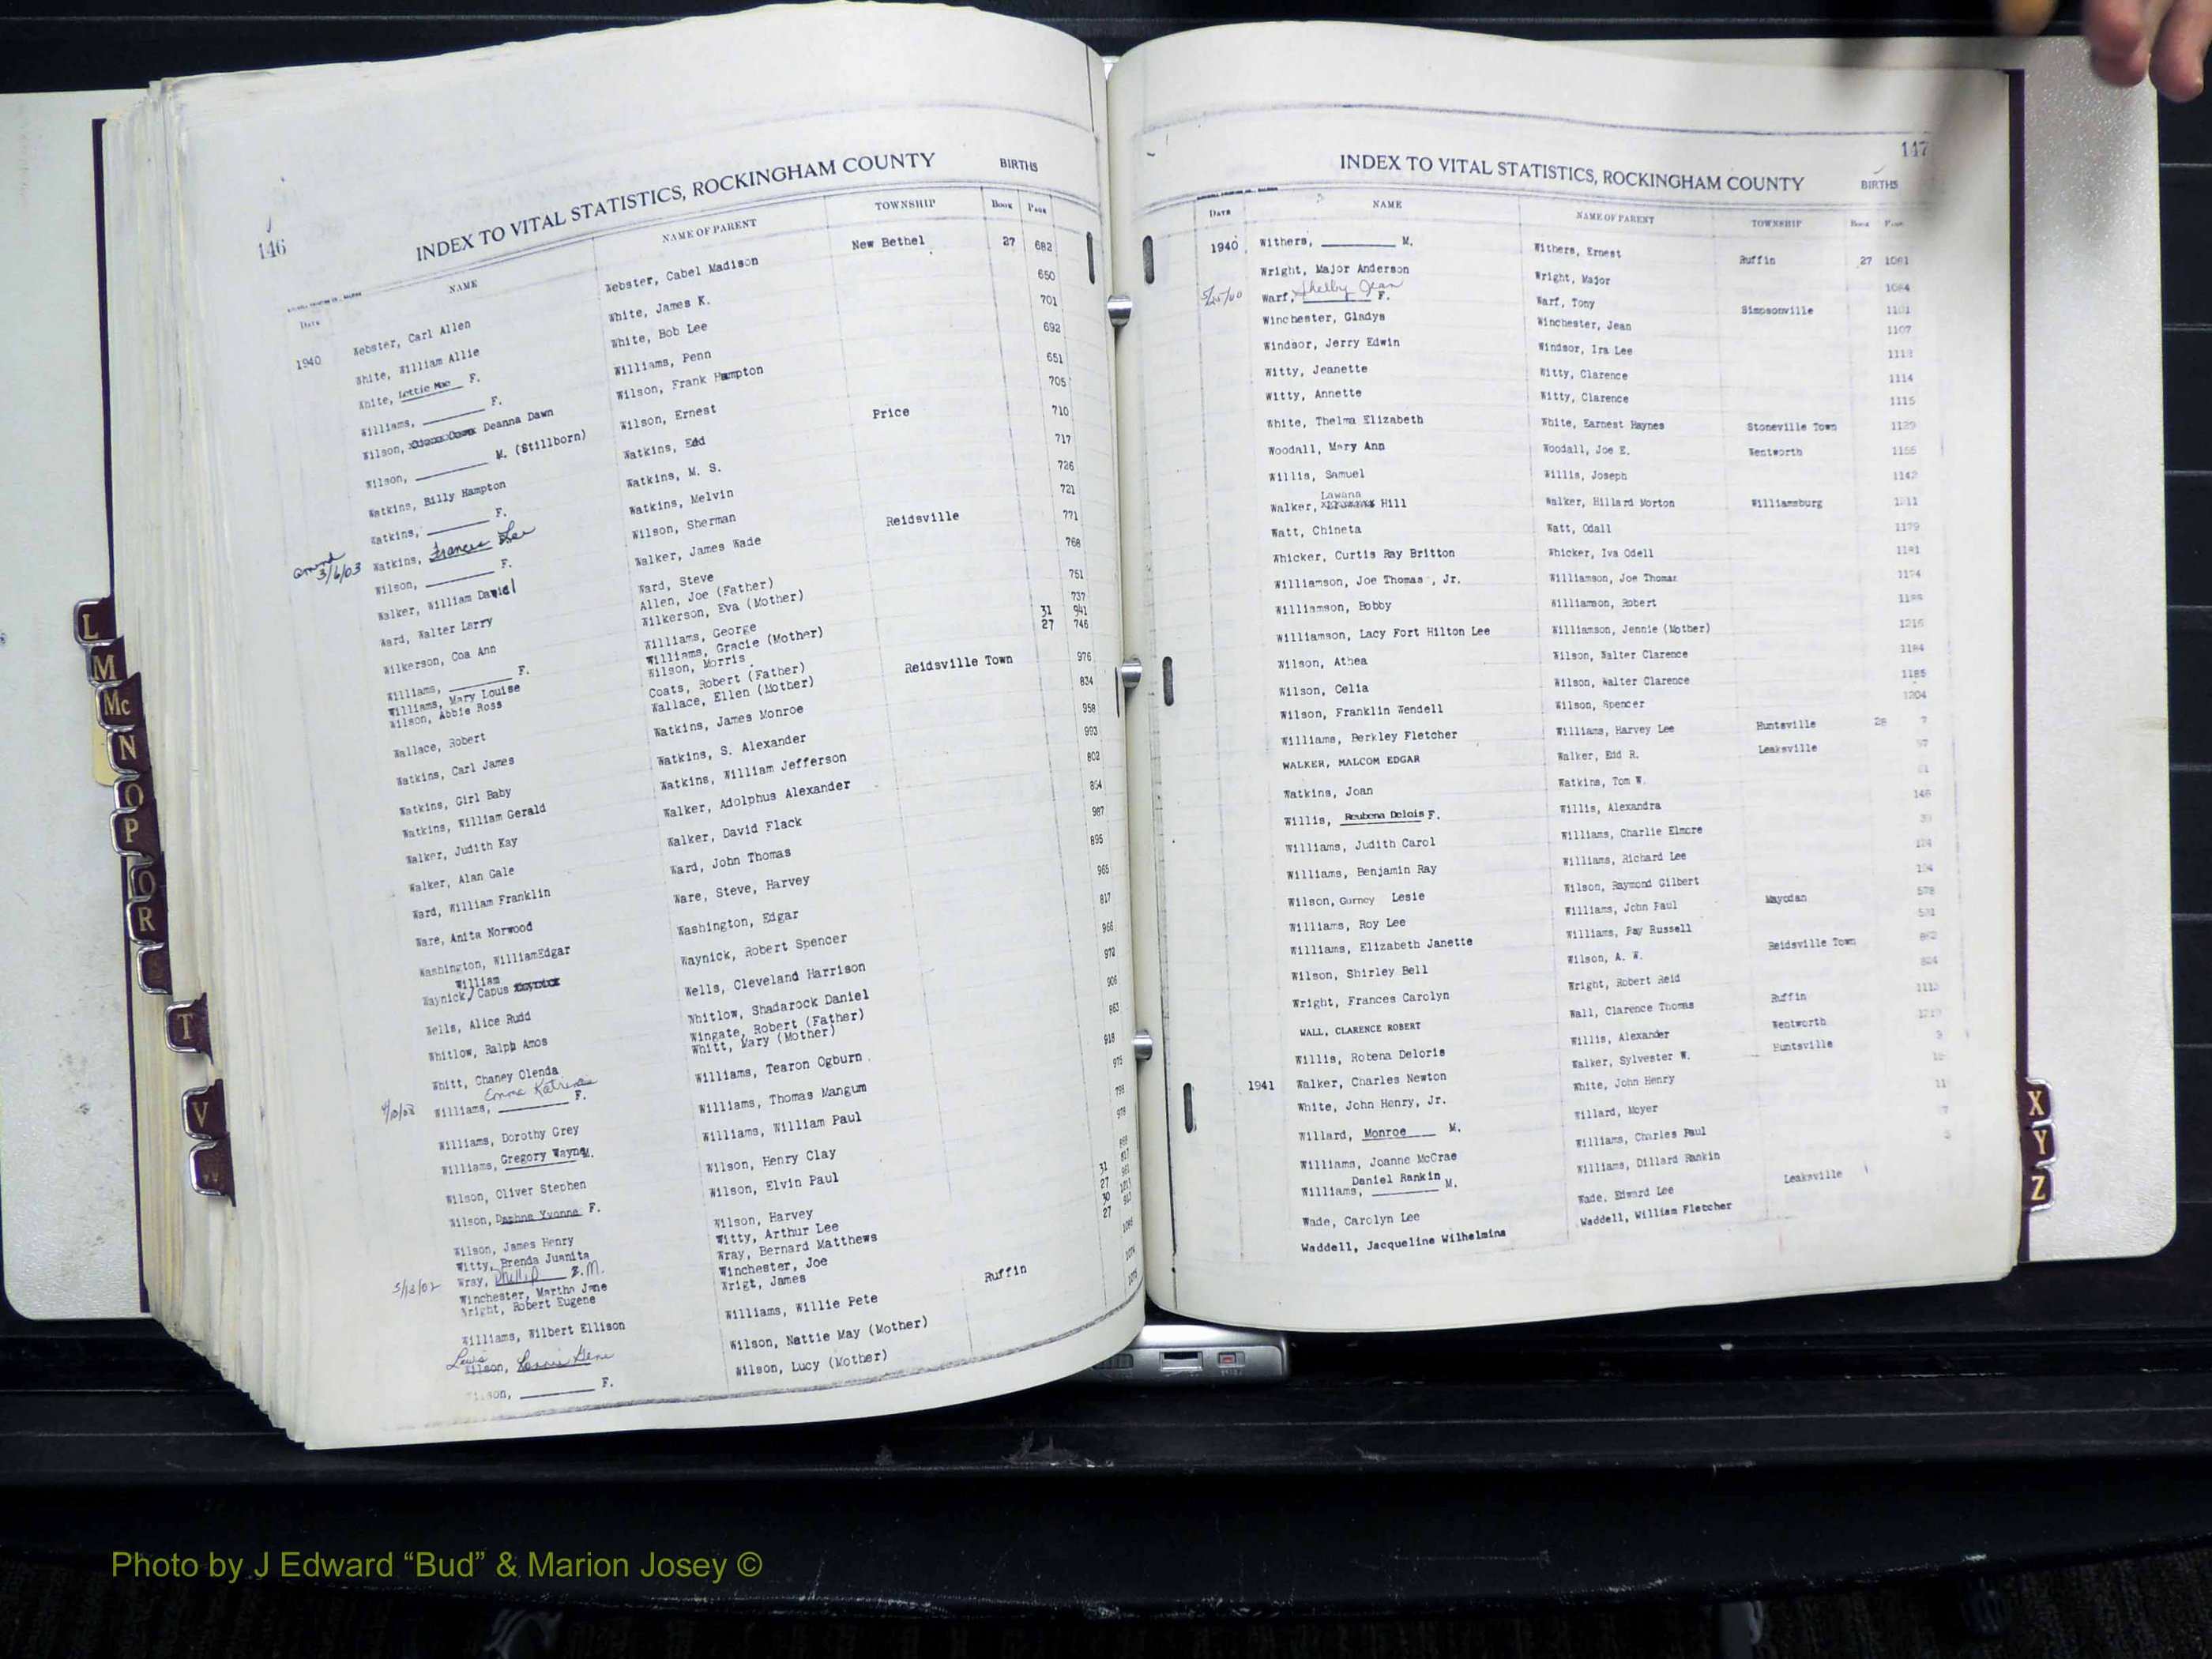 146
INDEX TO VITAL STATISTICS, ROCKINGHAM COUNTY BIRTHS
DATE NAME NAME OF PARENT TOWNSHIP BOOK PAGE
1940 Webster, Carl Allen Webster, Cabel Madison New Bethel 27 682
White, William Allie White, James K. 650
White, Lottie Mae F. White, Bob Lee 701
Williams, ________ F. Williams, Penn 692
Wilson, Deanna Dawn Wilson, Frank Hampton 651
Wilson, ________ M. (Stillborn) Wilson, Ernest 705
Watkins, Billy Hampton Watkins, Edd Price 710
Watkins, ________ F. Watkins, M. S. 717
3/6/03 Watkins, Frances Lee Watkins, Melvin 726
Wilson, ________ F. Wilson, Sherman 721
Walker, William David Walker, James Wade Reidsville 771
Ward, Walter Larry Ward, Steve 768
Wilkerson, Coa Ann Allen, Joe (Father)
Wilkerson, Eva (Mother) 751
Williams, ________ F. Williams, George 737
Williams, Mary Louise Williams, Gracie (Mother) 31 941
Wilson, Abbie Ross Wilson, Morris 27 746
Wallace, Robert Coats, Robert (Father)
Wallace, Ellen (Mother) Reidsville Town 976
Watkins, Carl James Watkins, James Monroe 834
Watkins, Girl Baby Watkins, S. Alexander 958
Watkins, William Gerald Watkins, William Jefferson 993
Walker, Judith Kay Walker, Adolphus Alexander 802
Walker, Alan Gale Walker, David Flack
Ward, William Franklin Ward, John Thomas 987
Ware, Anita Norwood Ware, Steve, Harvey 895
Washington, WilliamEdgar Washington, Edgar 965
William
Waynick, Capus Waynick, Robert Spencer 817
Wells, Alice Rudd Wells, Cleveland Harrison 966
Whitlow, Ralph Amos Whitlow, Shadarock Daniel 972
Whitt, Chaney Olenda Wingate, Robert (Father)
Whitt, Mary (Mother) 906
Emma Katrina
Williams, ________ F. Williams, Tearon Ogburn
Williams, Dorothy Grey Williams, Thomas Mangum 918
Williams, Gregory Wayne M. Williams, William Paul 975
Wilson, Oliver Stephen Wilson, Henry Clay
Wilson, Daphne Yvonne F. Wilson, Elvin Paul
Wilson, James Henry Wilson, Harvey
Witty, Brenda Juanita Witty, Arthur Lee 31
Wray, Phillip M. Wray, Bernard Matthews 27
Winchester, Martha Jane Winchester, Joe 30
Wright, Robert Eugene Wrigt, James 27
Williams, Wilbert Ellison Williams, Willie Pete Ruffin
Lewis
Wilson, Gene Wilson, Nettie May (Mother)
Wilson, ________ F. Wilson, Lucy (Mother)
147
INDEX TO VITAL STATISTICS, ROCKINGHAM COUNTY BIRTHS
DATE NAME NAME OF PARENT TOWNSHIP
1940 Withers, ________ M. Withers, Ernest Ruffin 27 1081
Wright, Major Anderson Wright, Major
Warf, Shelby Jean F. Warf, Tony Simpsonville 1101
Winchester, Gladys Winchester, Jean 1107
Windsor, Jerry Edwin Windsor, Ira Lee
Witty, Jeanette Witty, Clarence 1114
Witty, Annette Witty, Clarence 1115
White, Thelma Elizabeth White, Earnest Haynes Stoneville Town
Woodall, Mary Ann Woodall, Joe E. Wentworth
Willis, Samuel Willis, Joseph
Lawana
Walker, Hill Walker, Hillard Morton Williamsburg
Watt, Chineta Watt, Odall
Whicker, Curtis Ray Britton Whicker, Iva Odell
Williamson, Joe Thomas, Jr. Williamson, Joe Thomas
Williamson, Bobby Williamson, Robert
Williamson, Lacy Fort Hilton Lee Williamson, Jennie (Mother)
Wilson, Athea Wilson, Walter Clarence
Wilson, Celia Wilson, Walter Clarence 1185
Wilson, Franklin Wendell Wilson, Spencer 1204
Williams, Berkley Fletcher Williams, Harvey Lee Huntsville 28 7
WALKER, MALCOM EDGAR Walker, Edd R. Leaksville
Watkins, Joan Watkins, Tom W.
Willis, Reubena Delois F. Willis, Alexandra
Williams, Judith Carol Williams, Charlie Elmore
Williams, Benjamin Ray Williams, Richard Lee
Wilson, Gurney Lesie Wilson, Raymond Gilbert
Williams, Roy Lee Williams, John Paul Mayodan
Williams, Elizabeth Janette Williams, Ray Russell
Wilson, Shirley Bell Wilson, A. W. Reidsville Town
Wright, Frances Carolyn Wright, Robert Reid
WALL, CLARENCE ROBERT Wall, Clarence Thomas Ruffin
Willis, Robena Deloris Willis, Alexander Wentworth
1941 Walker, Charles Newton Walker, Sylvester W. Huntsville
White, John Henry, Jr. White, John Henry
Willard, Monroe M. Willard, Moyer
Williams, Joanne McCrae Williams, Charles Paul
Daniel Rankin
Williams, ________ M. Williams, Dillard Rankin
Wade, Carolyn Lee Wade, Edward Lee Leaksville
Waddell, Jacqueline Wilhelmina Waddell, William Fletcher
L
M
Mc
N
O
P
Q
R
T
V
W
X
Y
Z
Photo by J Edward “Bud” & Marion Josey ©